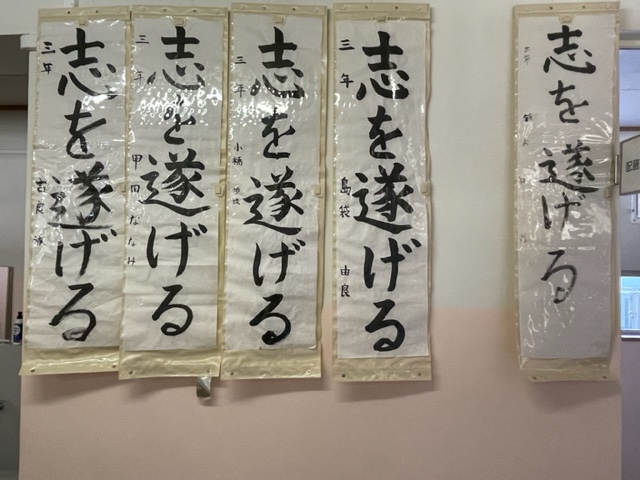 志を遂げる
三年 島袋 由良
志を遂げる
三年 小橋
志を遂げる
三年 甲田ななみ
志を遂げる
三年
志を遂げる